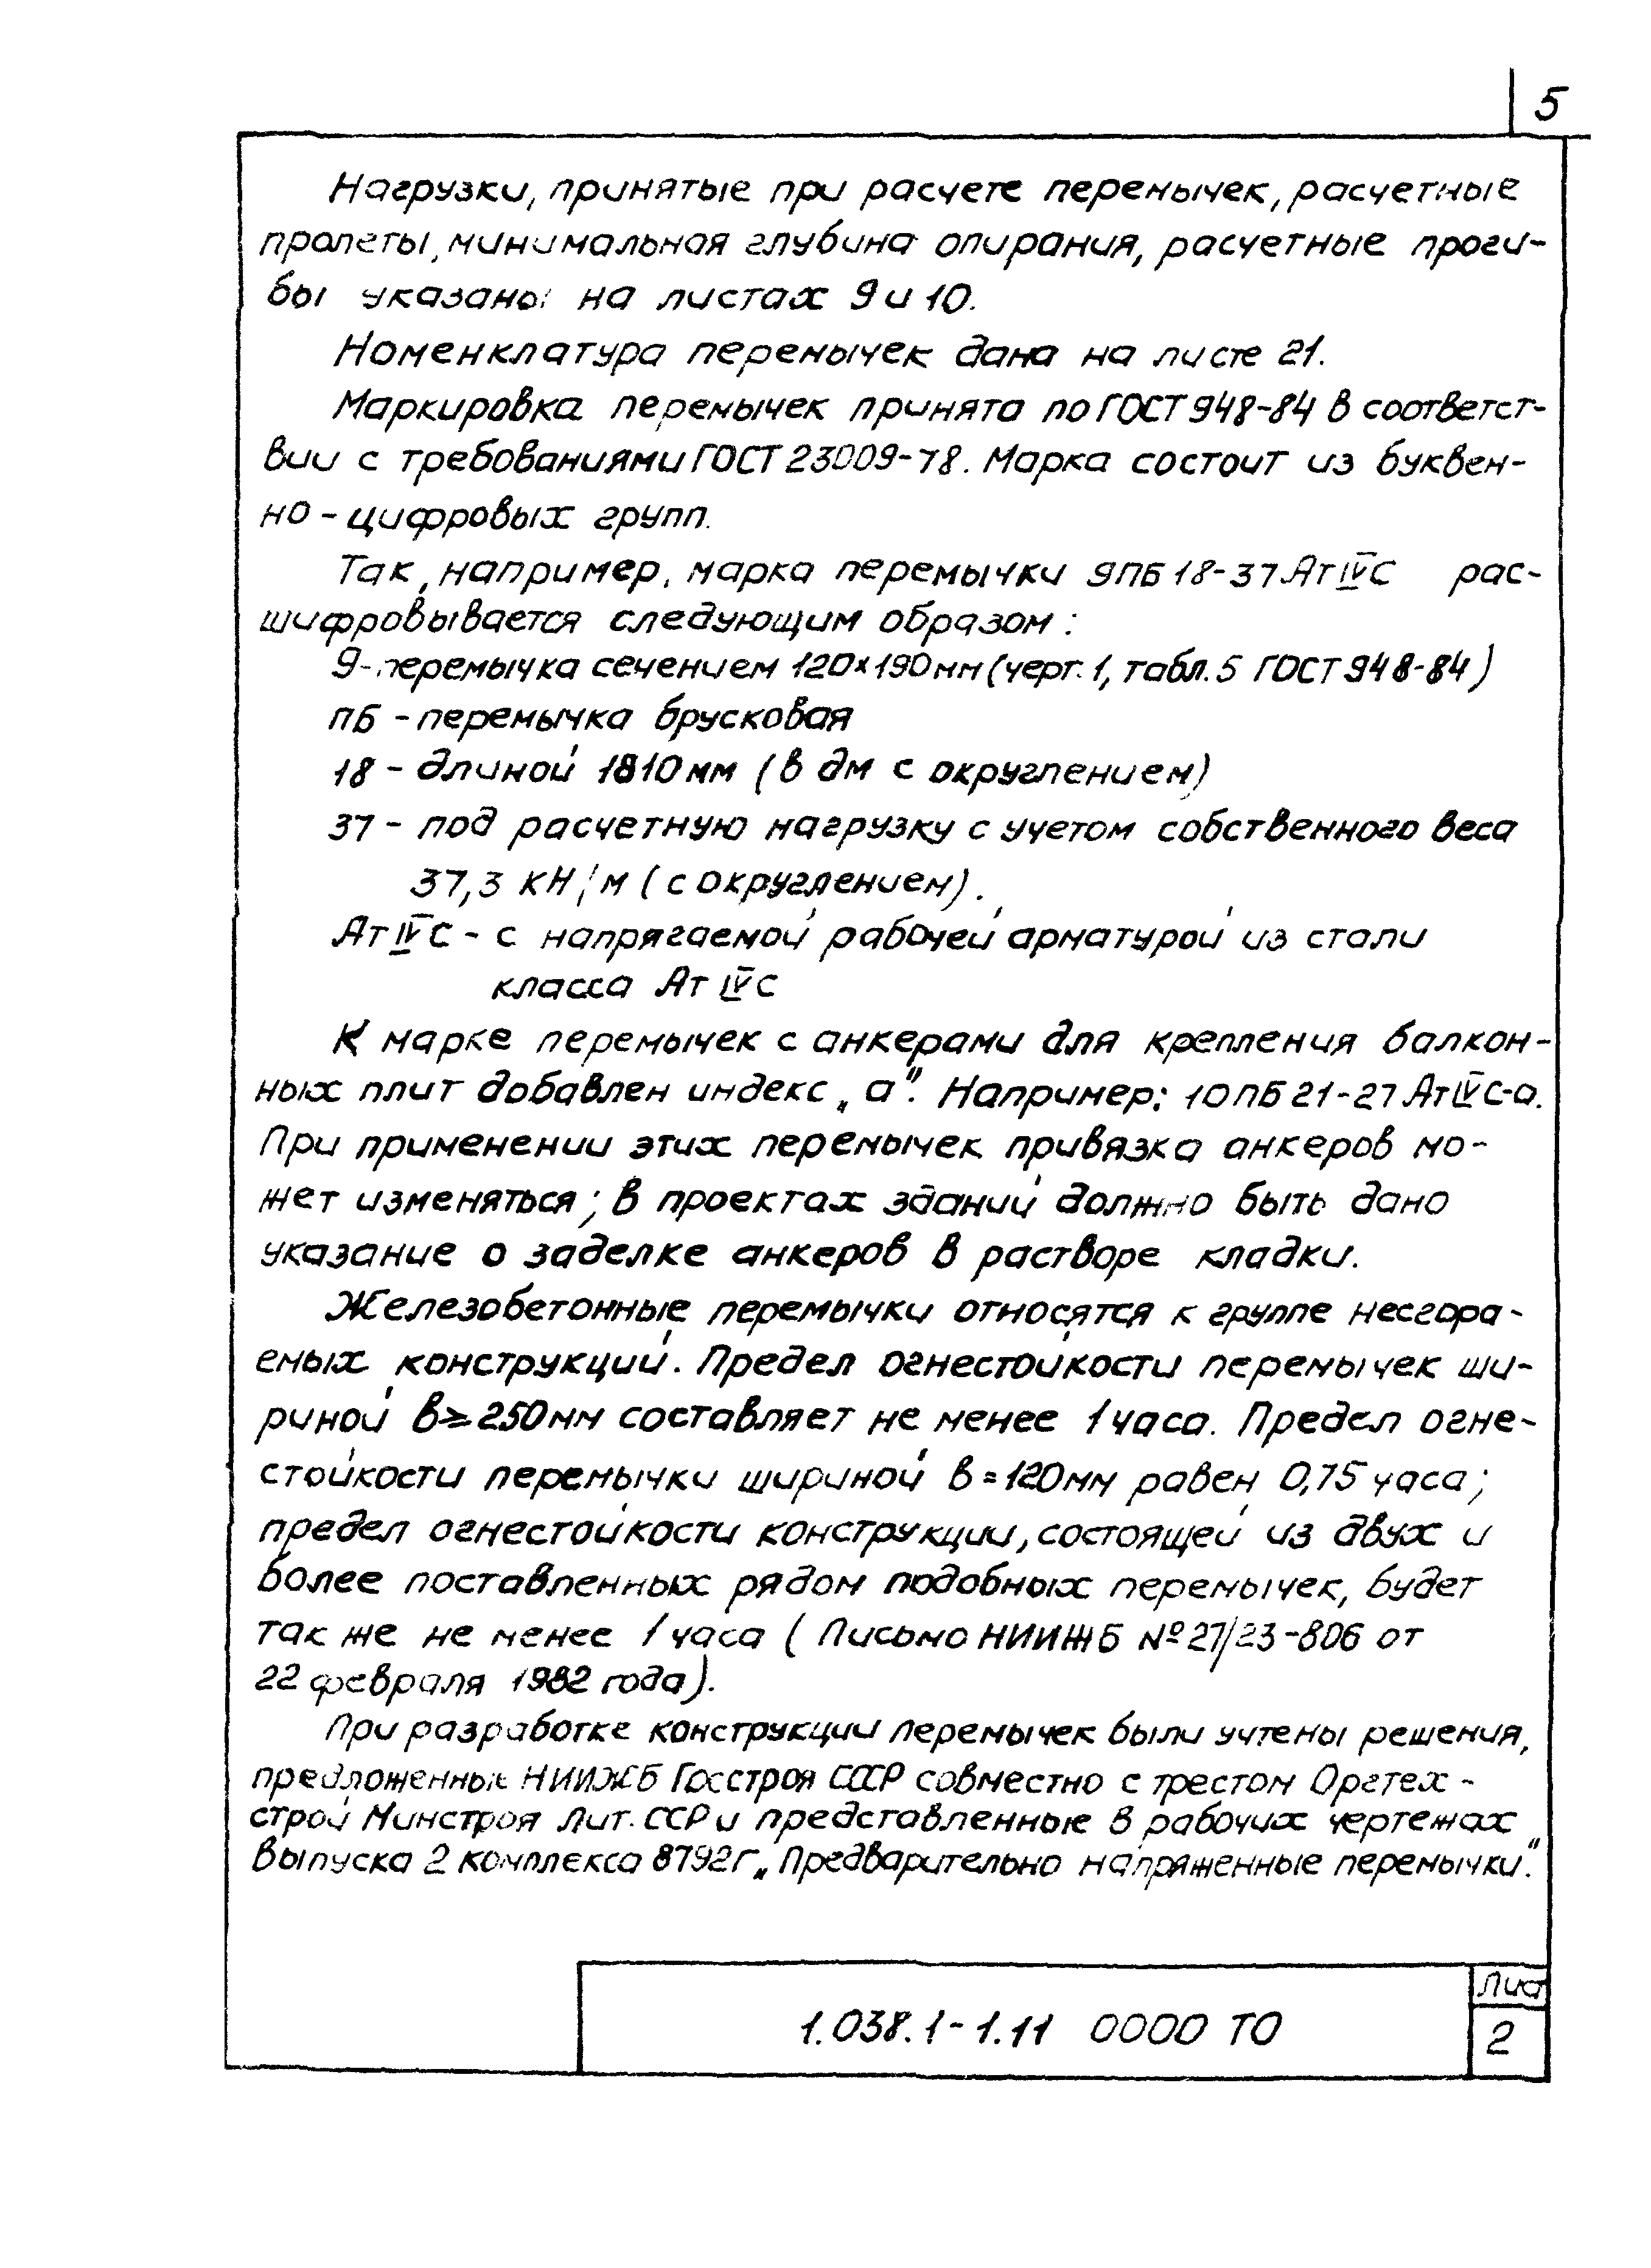 5
Нагрузки, принятые при расчете перемычек, расчетные
пролеты, минимальная глубина опирания, расчетные проги-
бы указаны на листах 9 и 10.
Номенклатура перемычек дана на листе 21.
Маркировка перемычек принята по ГОСТ 948-84 в соответст-
вии с требованиями ГОСТ 23009-78. Марка состоит из буквен-
но-цифровых групп.
Так, например, марка перемычки 9ПБ18-37АтIVС рас-
шифровывается следующим образом:
9-перемычка сечением 120×190мм (черт. 1, табл. 5 ГОСТ 948-84)
ПБ - перемычка брусковая
18 - длиной 1810мм (в дм с округлением)
37 - под расчетную нагрузку с учетом собственного веса
37,3 кН/м (с округлением).
АтIVС - с напрягаемой рабочей арматурой из стали
класса АтIVС
К марке перемычек с анкерами для крепления балкон-
ных плит добавлен индекс „а". Например: 10ПБ21-27АтIVС-а.
При применении этих перемычек привязка анкеров мо-
жет изменяться; в проектах зданий должно быть дано
указание о заделке анкеров в растворе кладки.
Железобетонные перемычки относятся к группе несгора-
емых конструкций. Предел огнестойкости перемычек ши-
риной в≥250мм составляет не менее 1 часа. Предел огне-
стойкости перемычки шириной в=120мм равен 0,75 часа;
предел огнестойкости конструкции, состоящей из двух и
более поставленных рядом подобных перемычек, будет
так же не менее 1 часа (Письмо НИИЖБ №27/23-806 от
22 февраля 1982 года).
При разработке конструкции перемычек были учтены решения,
предложенные НИИЖБ Госстроя СССР совместно с трестом Оргтех-
строй Минстроя Лит. ССР и представленные в рабочих чертежах
выпуска 2 комплекса 8792г „Предварительно напряженные перемычки".
1.038.1-1.11 0000 ТО
Лист
2